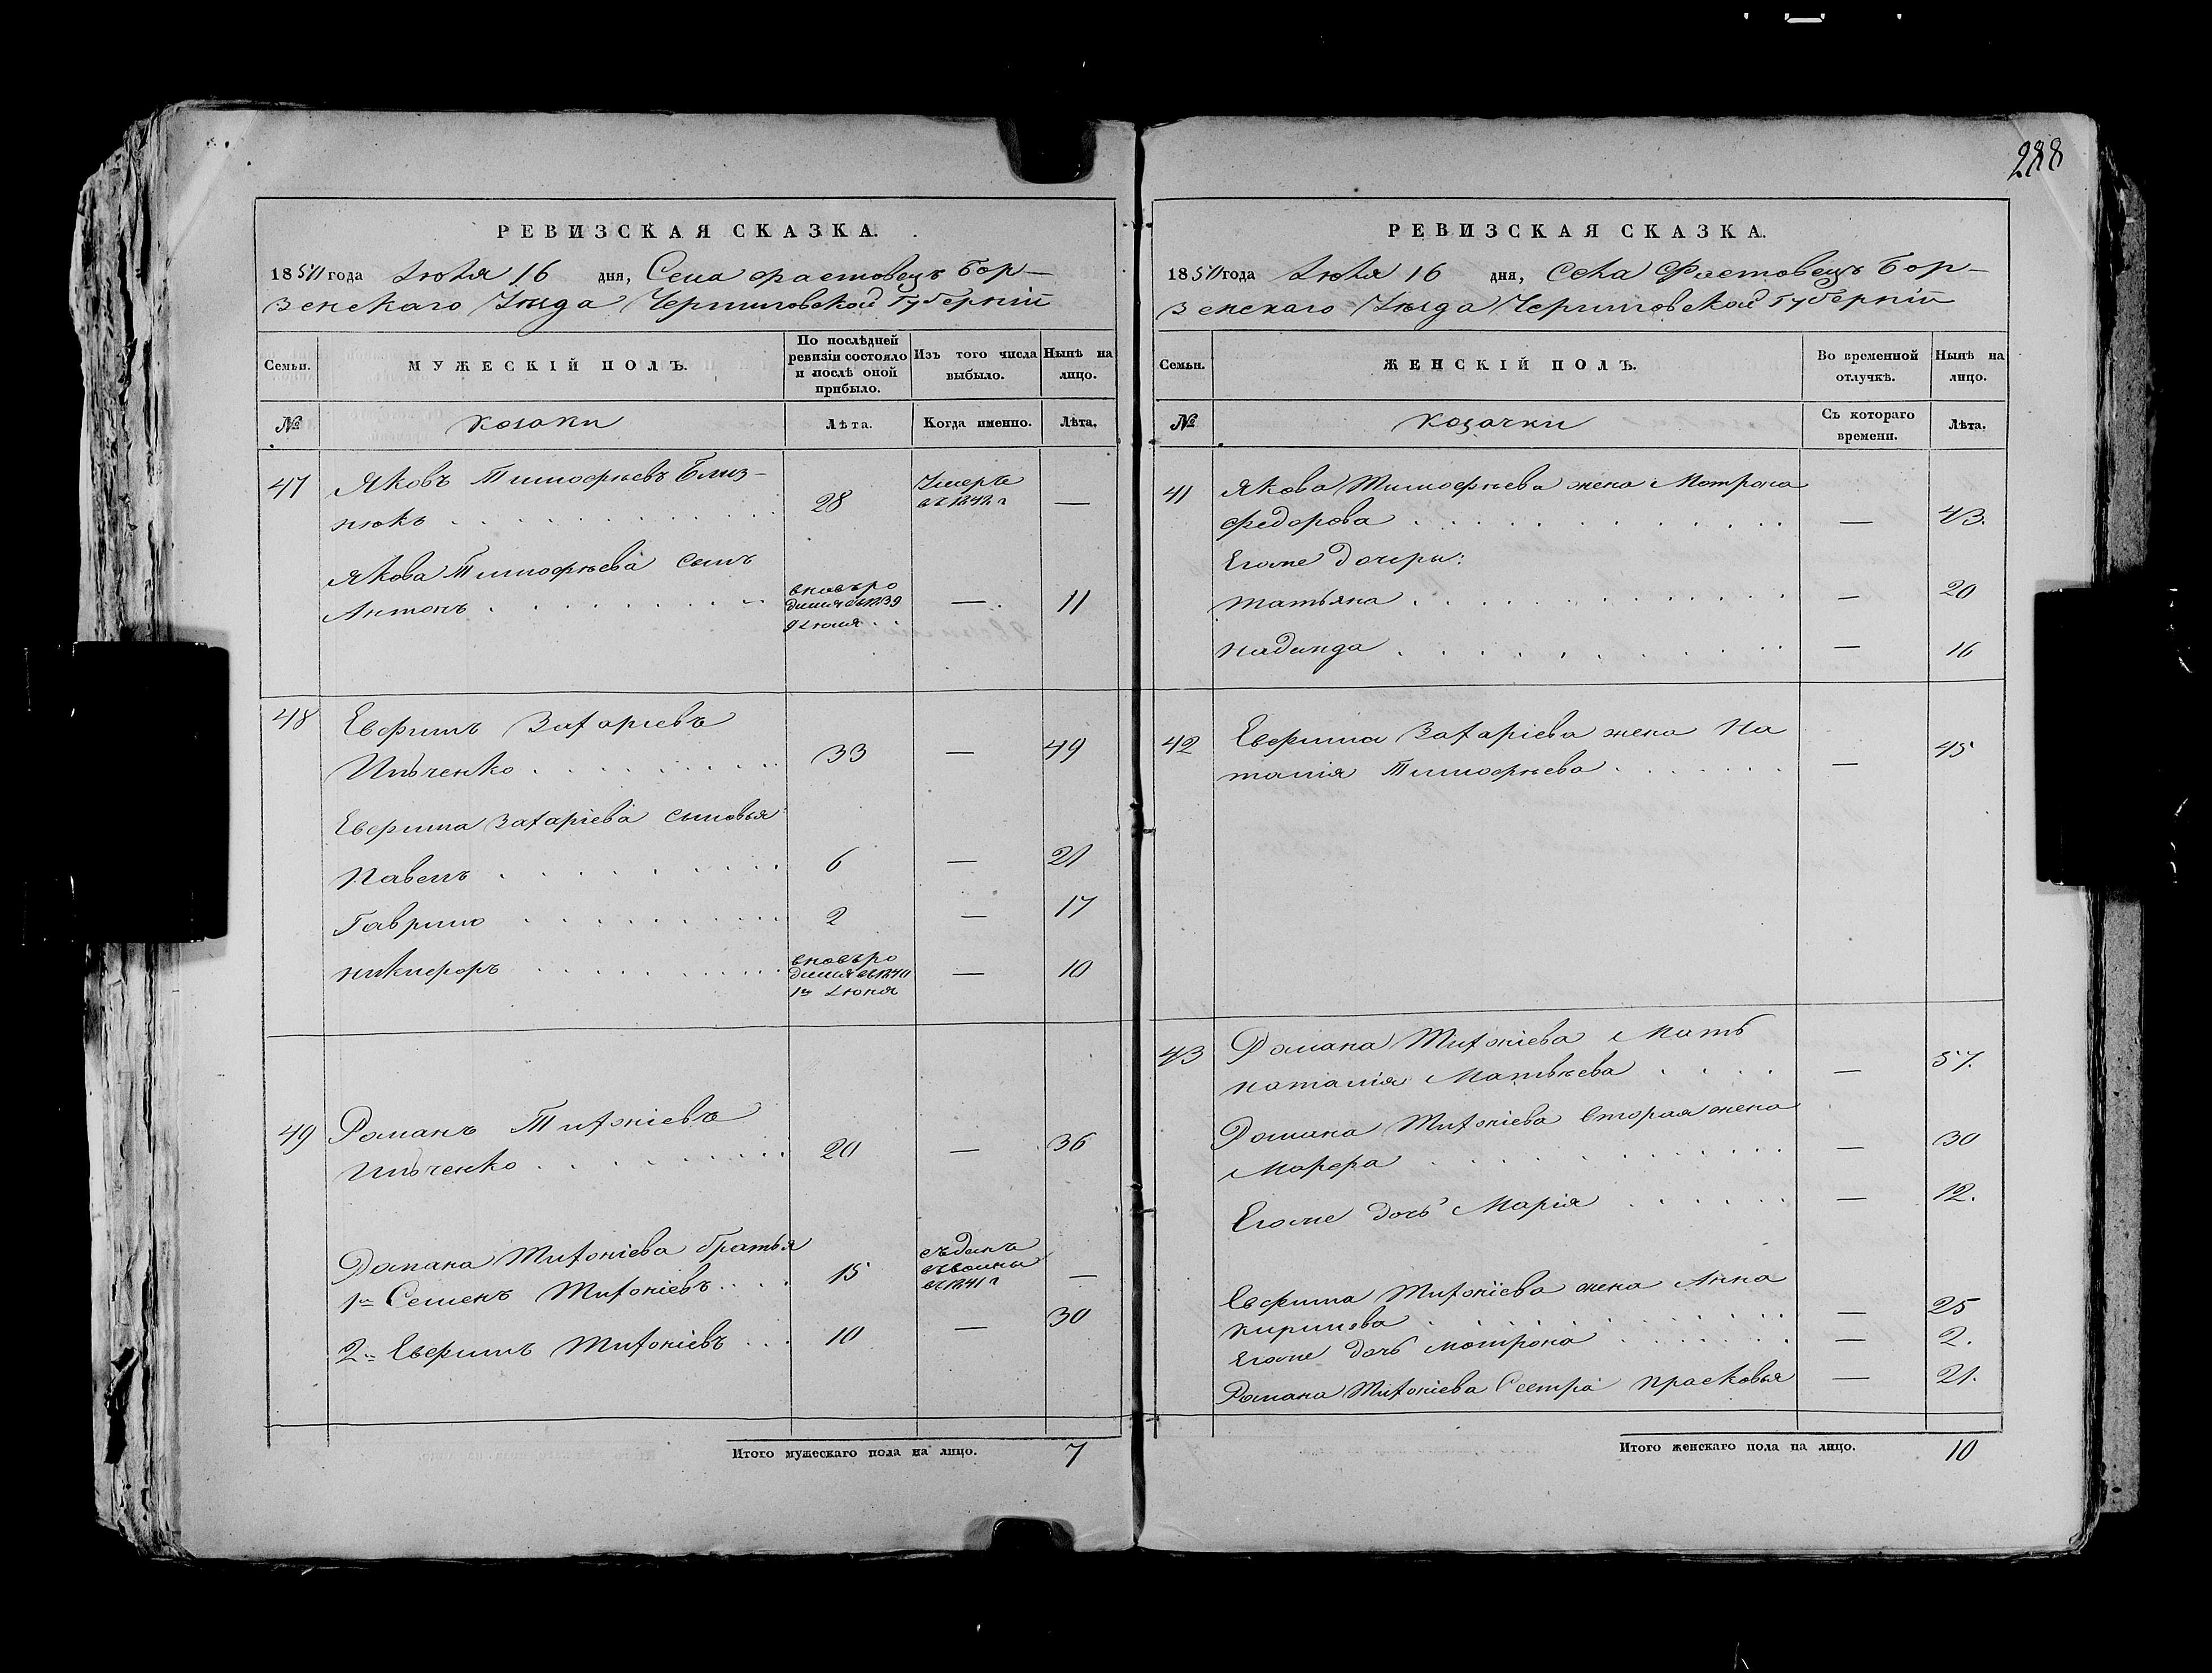 288
РЕВИЗСКАЯ СКАЗКА.
1850 года Іюля 16 дня, Села Фастовецъ Бор-
зенскаго Уѣзда Черниговской Губерніи
Семьи.
МУЖЕСКІЙ ПОЛЪ.
По послѣдней ревизіи состояло и послѣ оной прибыло.
Изъ того числа выбыло.
Нынѣ на лицо.
№
козаки
Лѣта.
Когда именно.
Лѣта.
47 Яковъ Тимофѣевъ Близ-
нюкъ 28 Умеръ въ 1842 г —
Якова Тимофѣева сынъ
Антонъ вновь ро дился въ 1839 9 Іюля — 11
48 Евфимъ Захаріевъ
Ильченко 33 — 49
Евфима Захаріева сыновья
Павелъ 6 — 21
Гаврило 2 — 17
Никифоръ вновь ро дился въ 1840 1го Іюня — 10
49 Романъ Тихоніевъ
Ильченко 20 — 36
Романа Тихоніева братья
1й Семенъ Тихоніевъ 15 въ 1841 г —
2й Евфимъ Тихоніевъ 10 — 30
Итого мужескаго пола на лицо. 7
РЕВИЗСКАЯ СКАЗКА.
1850 года Іюля 16 дня, Села Фастовецъ Бор-
зенскаго Уѣзда Черниговской Губерніи
Семьи.
ЖЕНСКІЙ ПОЛЪ.
Во временной отлучкѣ.
Нынѣ на лицо.
№
козачки
Съ котораго времени.
Лѣта.
41 Якова Тимофѣева жена Мотрона
Федорова — 43.
Егоже дочери:
Татьяна — 20
Надежда — 16
42 Евфима Захаріева жена На
талія Тимофѣева — 45
43 Романа Тихоніева Мать
Наталія Матвѣева — 57.
Романа Тихоніева вторая жена
Марфа — 30
Егоже дочь Марія — 12.
Евфима Тихоніева жена Анна
Кирилова — 25
Егоже дочь Мотрона — 2.
Романа Тихоніева Сестра Прасковья — 21.
Итого женскаго пола на лицо. 10